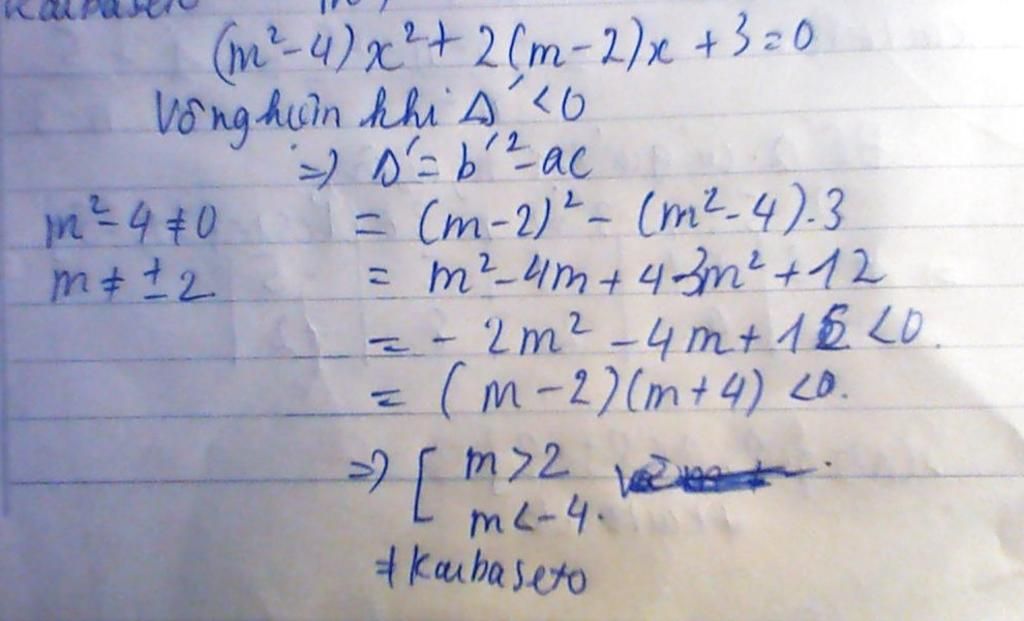 (m²-4)x²+2(m-2)x+3=0
Vô nghiệm khi Δ'<0
=> Δ'=b'²-ac
m²-4≠0 = (m-2)²-(m²-4).3
m≠±2 = m²-4m+4-3m²+12
= -2m²-4m+16<0.
= (m-2)(m+4)<0.
=> [ m>2
m<-4.
≠Kaibaseto